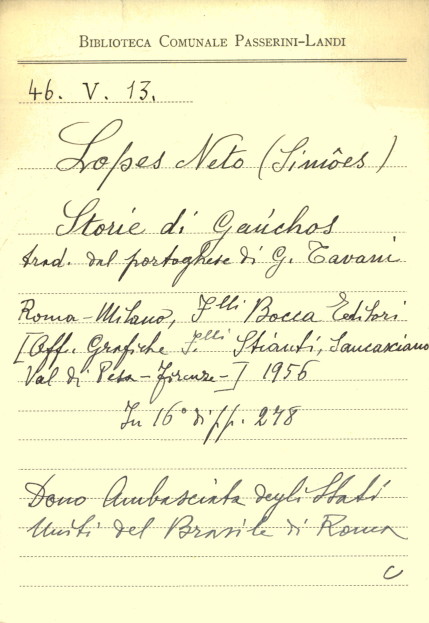 BIBLIOTECA COMUNALE PASSERINI-LANDI
46. V. 13.
Lopes Neto (Simões)
Storie di Gaúchos
trad. dal portoghese di G. Tavani
Roma-Milano, F.lli Bocca Editori
[Off. Grafiche F.lli Stianti, Sancasciano
Val di Pesa-Firenze-] 1956
In 16° di pp. 278
Dono Ambasciata degli Stati
Uniti del Brasile di Roma
C